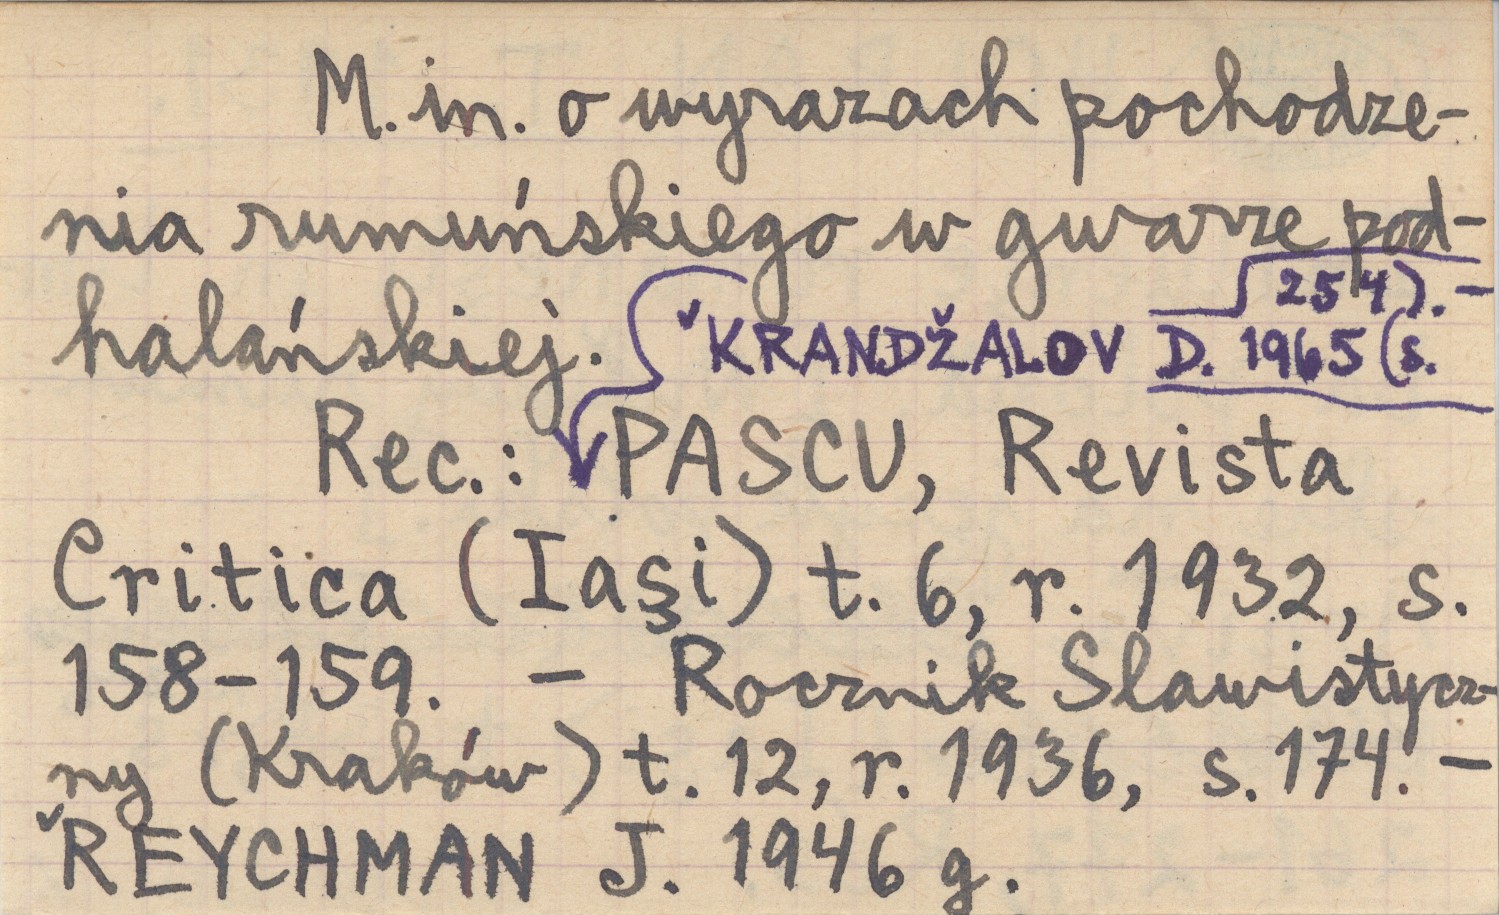 M. in. o wyrazach pochodze-
nia rumuńskiego w gwarze pod-
halańskiej.
KRANDŽALOV D. 1965 (s.
254). –
Rec.: PASCU, Revista
Critica (Iaşi) t. 6, r. 1932, s.
158–159. – Rocznik Slawistycz-
ny (Kraków) t. 12, r. 1936, s. 174. –
REYCHMAN J. 1946 g.